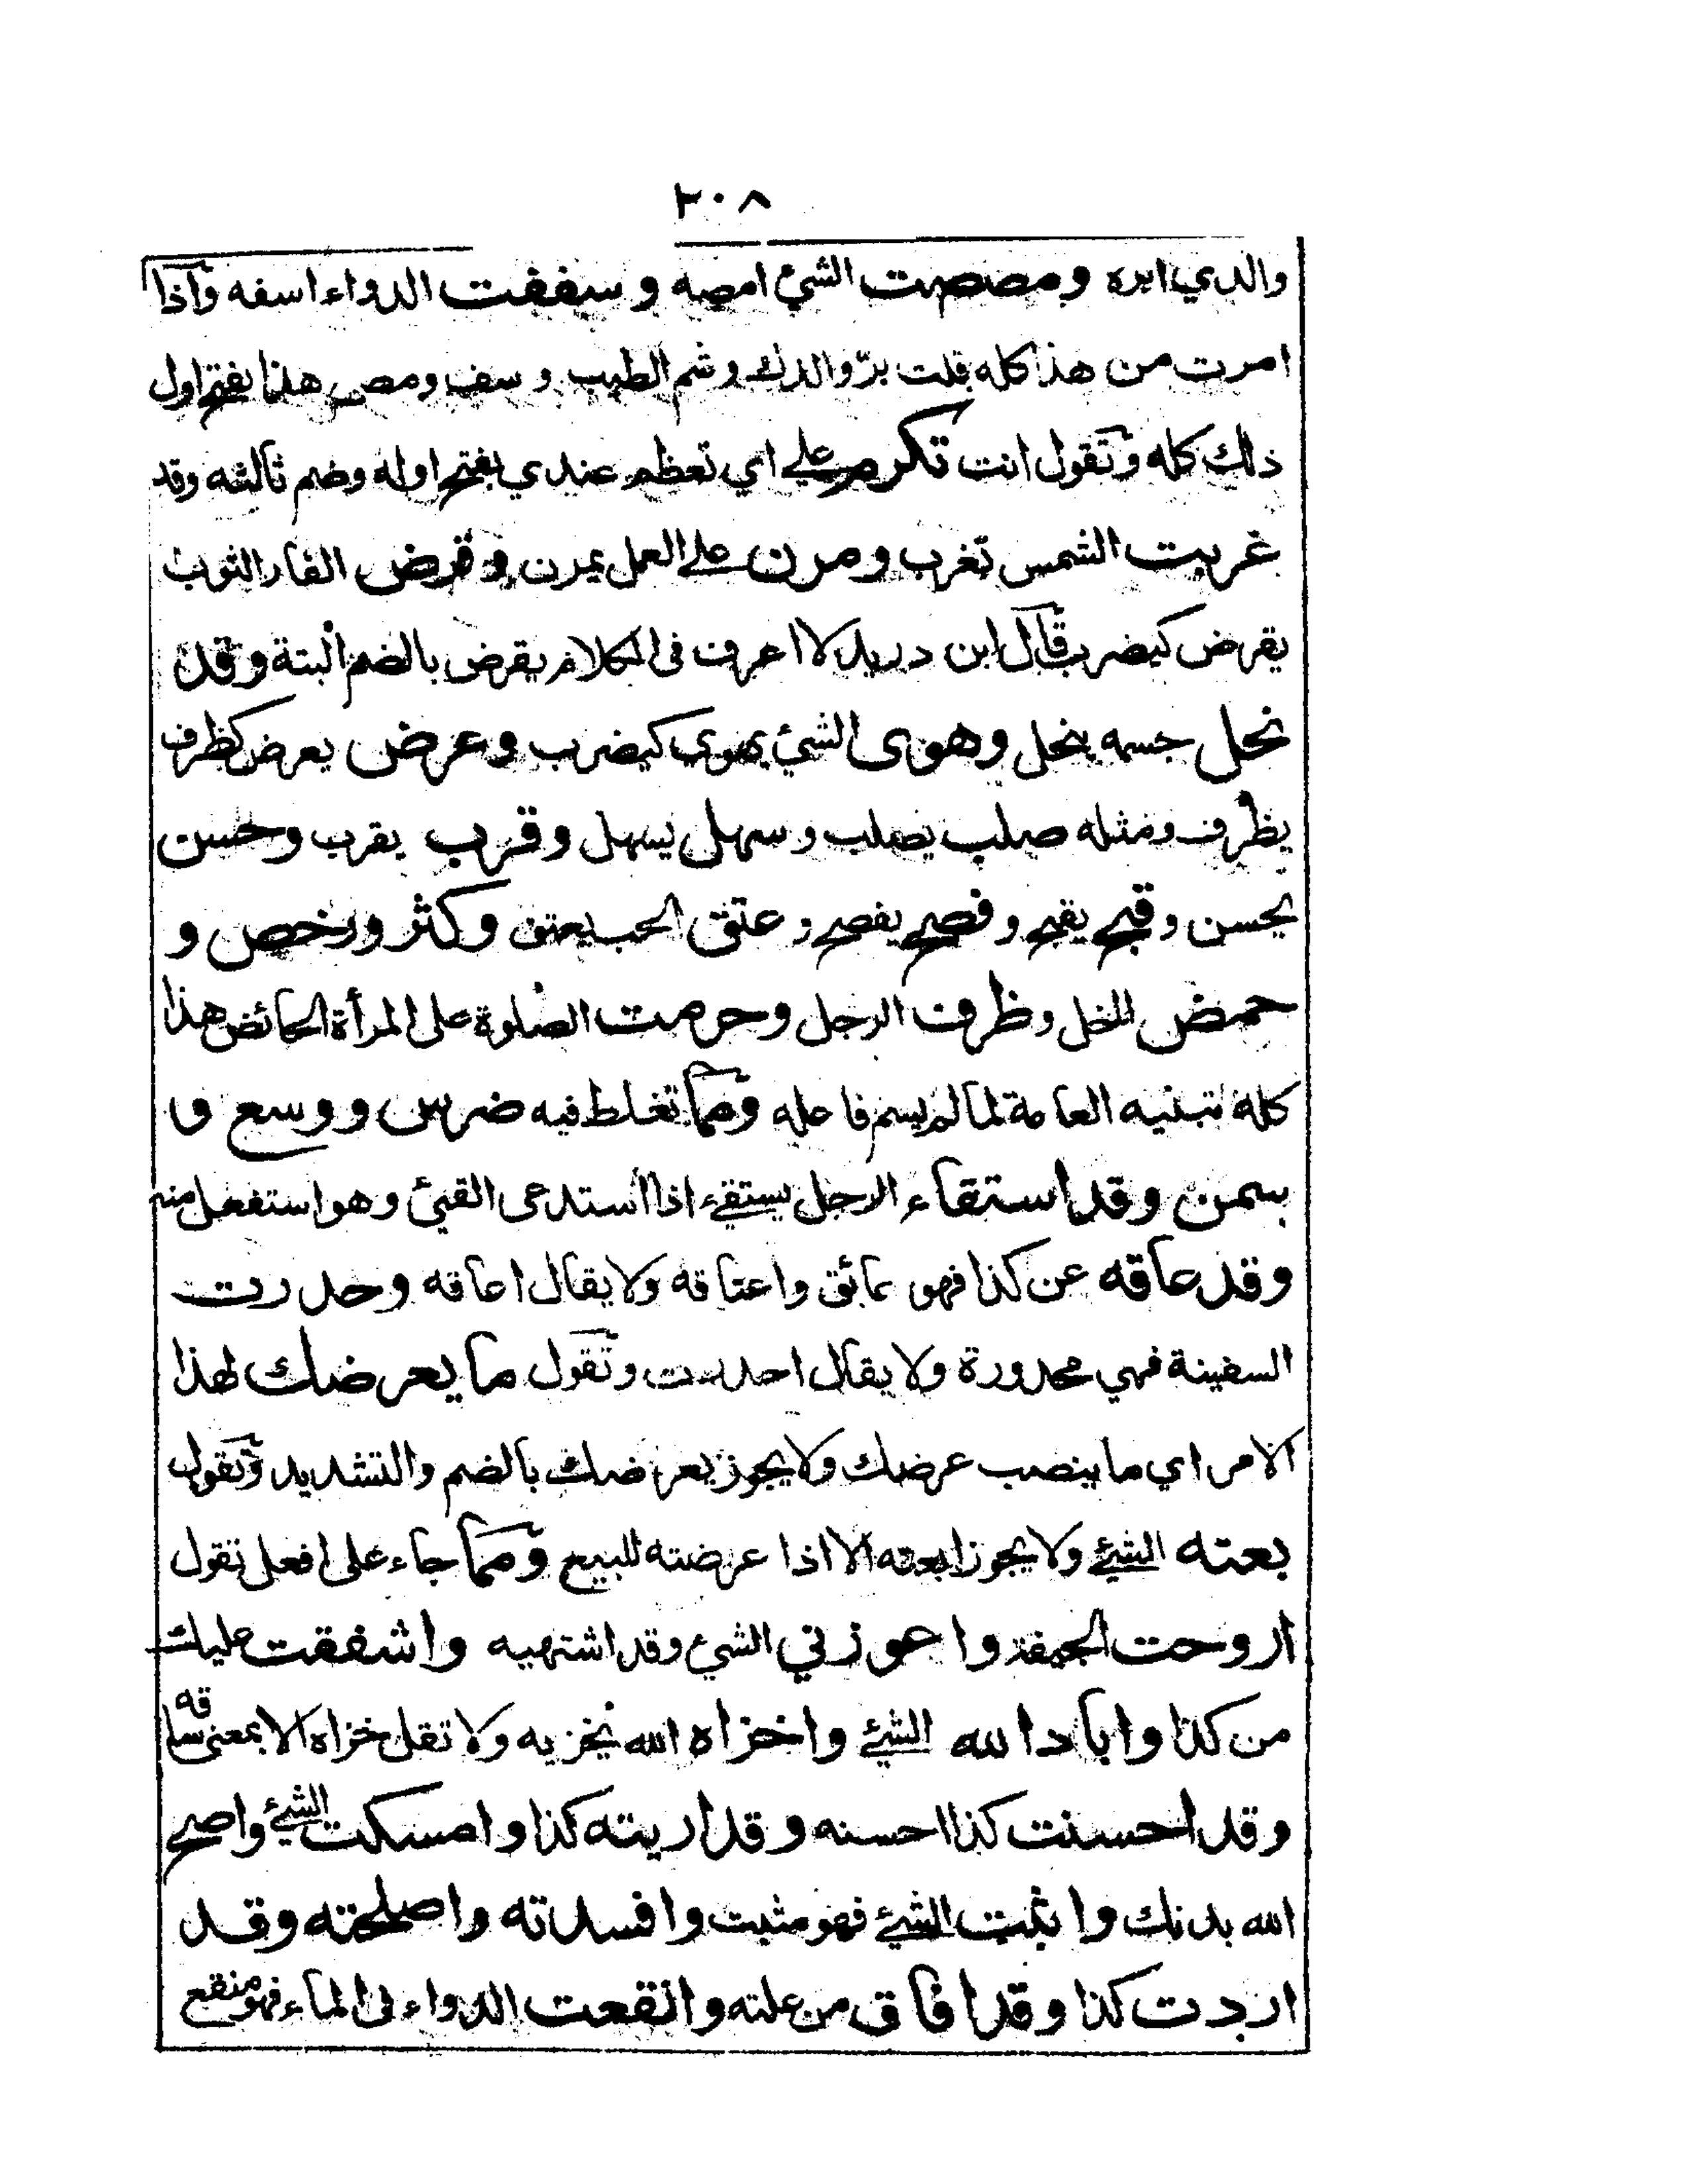 ٢٠٨
والدي ابره ومصصت الشئ امصه وسففت الدواء اسفه واذا
امرت من هذا كله قلت برّ والدك وشم الطيب وسف ومص هذا بفتح اول
ذلك كله وتقول انت تكرم علي اي تعظم عندي بفتح اوله وضم ثالثه وقد
غربت الشمس تغرب ومرن على العمل يمرن وقرض الفار الثوب
يقرض كيضرب قال ابن دريد لا اعرف فى الكلام يقرض بالضم البتة وقد
نحل جسمه ينحل وهوى الشئ يهوى كيضرب وعرض يعرض كظرف
يظرف ومثله صلب يصلب وسهل يسهل وقرب يقرب وحسن
يحسن وقبح يقبح وفصح يفصح وعتق الحب يعتق وكثر ورخص و
حمض الخل وظرف الرجل وحرمت الصلوة على المرأة الحائض هذا
كله تبنيه العامة لما لم يسم فاعله ومما تغلط فيه ضرس ووسع و
سمن وقد استقاء الرجل يستقئ اذا استدعى القيئ وهو استفعل منه
وقد عاقه عن كذا فهو عائق واعتاقه ولا يقال اعاقه وحدرت
السفينة فهي محدورة ولا يقال احدرت وتقول ما يعرضك لهذا
الامر اي ما ينصب عرضك ولا يجوز يعرضك بالضم والتشديد وتقول
بعته الشئ ولا يجوز ابعته الا اذا عرضته للبيع ومما جاء على افعل تقول
اروحت الجيفة واعوزني الشئ وقد اشتهيه واشفقت عليك
من كذا واباد الله الشئ واخزاه الله يخزيه ولا تقل خزاه الا بمعنى ساقه
وقد احسنت كذا احسنه وقد اريته كذا وامسكت الشئ واصح
الله بدنك واثبت الشئ فهو مثبت وافسدته واصلحته وقد
اردت كذا وقد افاق من علته وانقعت الدواء فى الماء فهو منقع